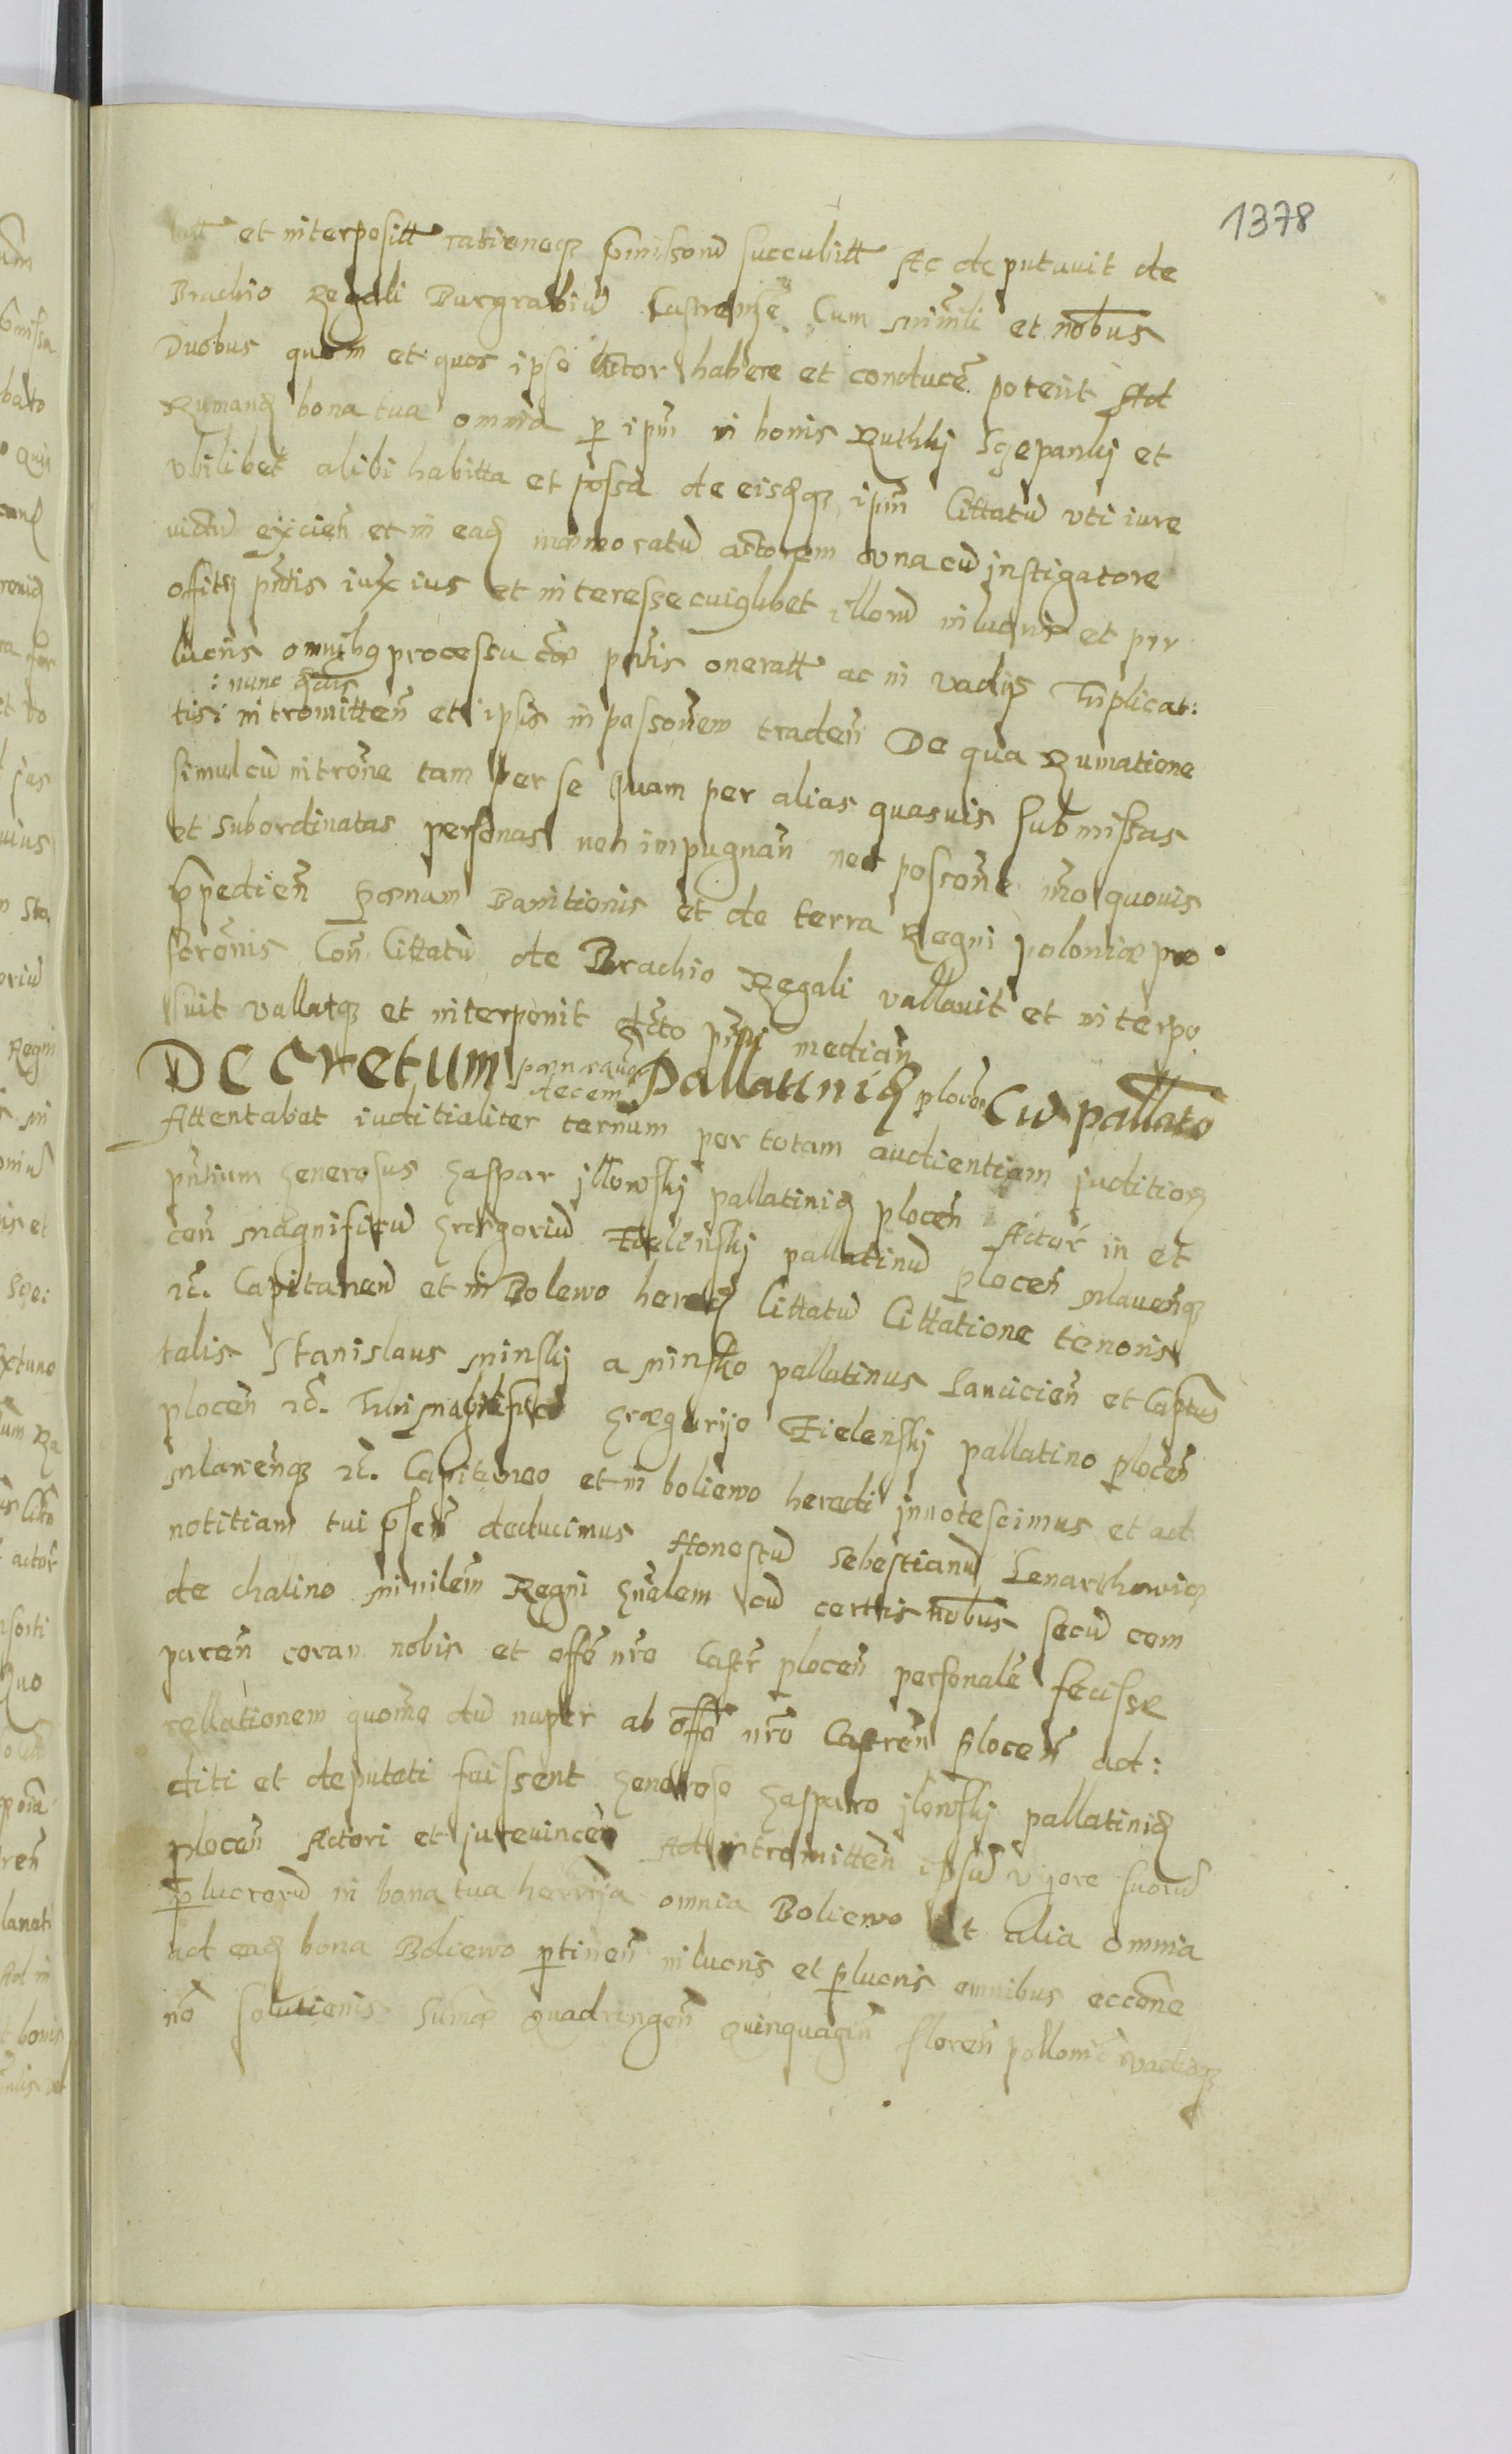 1378
et interpositt rationeqz pmissoru succubitt Ac deputauit de
Brachio Regali Burgrabiu Castrense Cum Miniili et nobus
Duobus quem et quos ipse Actor habere et conducē poterit Ad
Rumand bona tua omnia p ipm in bonis Ruthkj Sczepankj et
vbilibet alibi habitta et possa de eisdqz ipm Cittatu vti iure
victu eijcien et in ead memoratu actorem vna cu jnstigatore
offity pntis iux ius et interesse cuiuslibet illoru in lucris et per
lucris omnibus processu pntis oneratt ac in vadijs Triplicat:
: nunc
tis: intromitten et ipsis in possonem traden De qua Rumatione
simul cu introne tam per se Quam per alias quasuis submissas
et subordinatas personas non impugnan nec possone mo quouis
pedien Pœnam Banitionis et de terra Regni poloniæ pro
scronis Con Cittatu de Brachio Regali vallauit et interpo
suit vallatqz et interponit dcto pnti median
Decretum decem Pallatinid plocen Cu pallato
Attentabat iuditialiter ternum per totam audientiam juditior
pntium Generosus Gaspar jllowskj pallatinid plocen Actor in et
con Magnificu Gregoriu Zielinskj pallatinu plocen Mlauenqz
zc. Capitaneu et in Bolewo hered Cittatu Cittatione tenoris
talis Stanislaus Minskj a Minsko pallatinus Lancicien et Captus
plocen zc. Tibi Magnifico Grægorijo Zielenskj pallatino plocen
Mlavienqz zc. Capitaneo et in boliewo heredi jnnotescimus et ad
notitiam tui psen deducimus Honestu Sebestianu Lenarthowicz
de chalino Minilem Regni Gnalem cu certtis nobus secu com
paren coram nobis et offo nro Castr plocen personale fecisse
rellationem quomo du nuper ab offo nro Castren plocen ad:
diti et deputati fuissent Generoso Gasparo jlowskj pallatinid
plocen Actori et jurevincen Ad intromitten ipsu vigore suoru
plucroru in bona tua omnia Boliewo Et alia omnia
ad ead bona Boliewo ptinen in lucris et plucris omnibus occone
no solutionis Sumæ Quadringen Quinquagin floren pollonic vadiqz